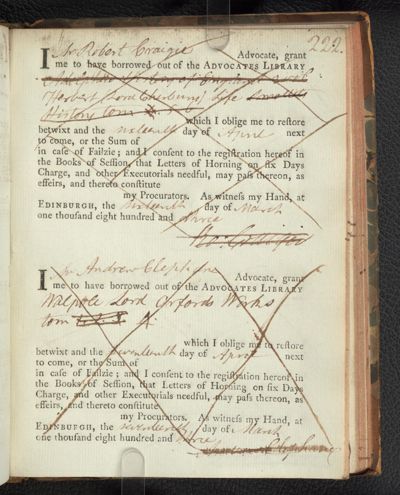 222.
I Mr Robert Craigie Advocate, grant
me to have borrowed out of the ADVOCATES LIBRARY
Herbert (Lord Cherbury) Life Smollets
History tom
which I oblige me to restore
betwixt and the sixteenth day of April next
to come, or the Sum of
in case of Failzie; and I consent to the registration hereof in
the Books of Session, that Letters of Horning on six Days
Charge, and other Executorials needful, may pass thereon, as
effeirs, and thereto constitute
my Procurators. As witness my Hand, at
EDINBURGH, the sixteenth day of March
one thousand eight hundred and three
Ro: Craigie
I Mr Andrew Clephane Advocate, grant
me to have borrowed out of the ADVOCATES LIBRARY
Walpole Lord Orfords Works
tom
which I oblige me to restore
betwixt and the seventeenth day of April next
to come, or the Sum of
in case of Failzie; and I consent to the registration hereof in
the Books of Session, that Letters of Horning on six Days
Charge, and other Executorials needful, may pass thereon, as
effeirs, and thereto constitute
my Procurators. As witness my Hand, at
EDINBURGH, the seventeenth day of March
one thousand eight hundred and three
Clephane